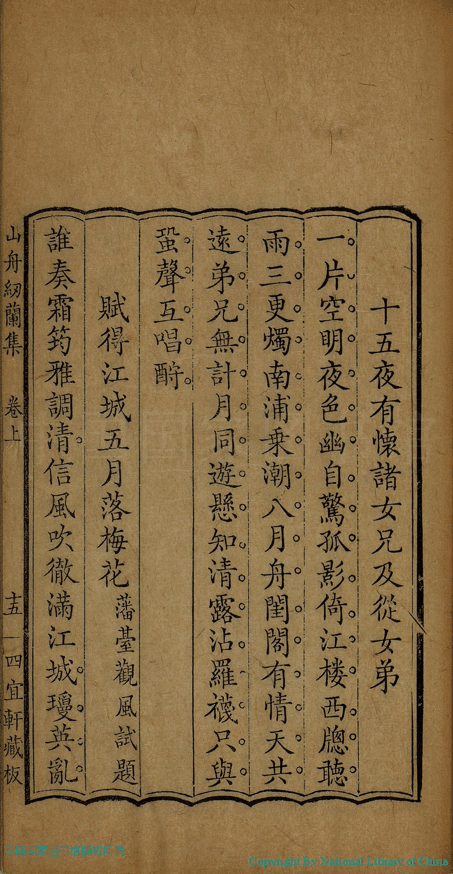 十五夜有懷諸女兄及從女弟
一片空明夜色幽自驚孤影倚江楼西牕聽
雨三更燭南浦乗潮八月舟閨閣有情天共
遠弟兄無計月同遊懸知清露沾羅襪只與
蛩聲互唱酧
賦得江城五月落梅花 藩臺觀風試題
誰奏霜筠雅調清信風吹徹滿江城瓊英亂
山舟紉蘭集 卷上 十五 四宜軒藏板
Copyright By National Library of China